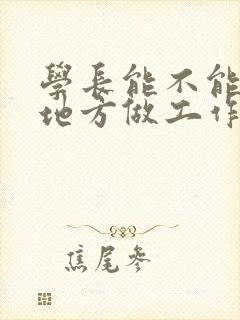 學長能不能
地方做工作
焦尾參